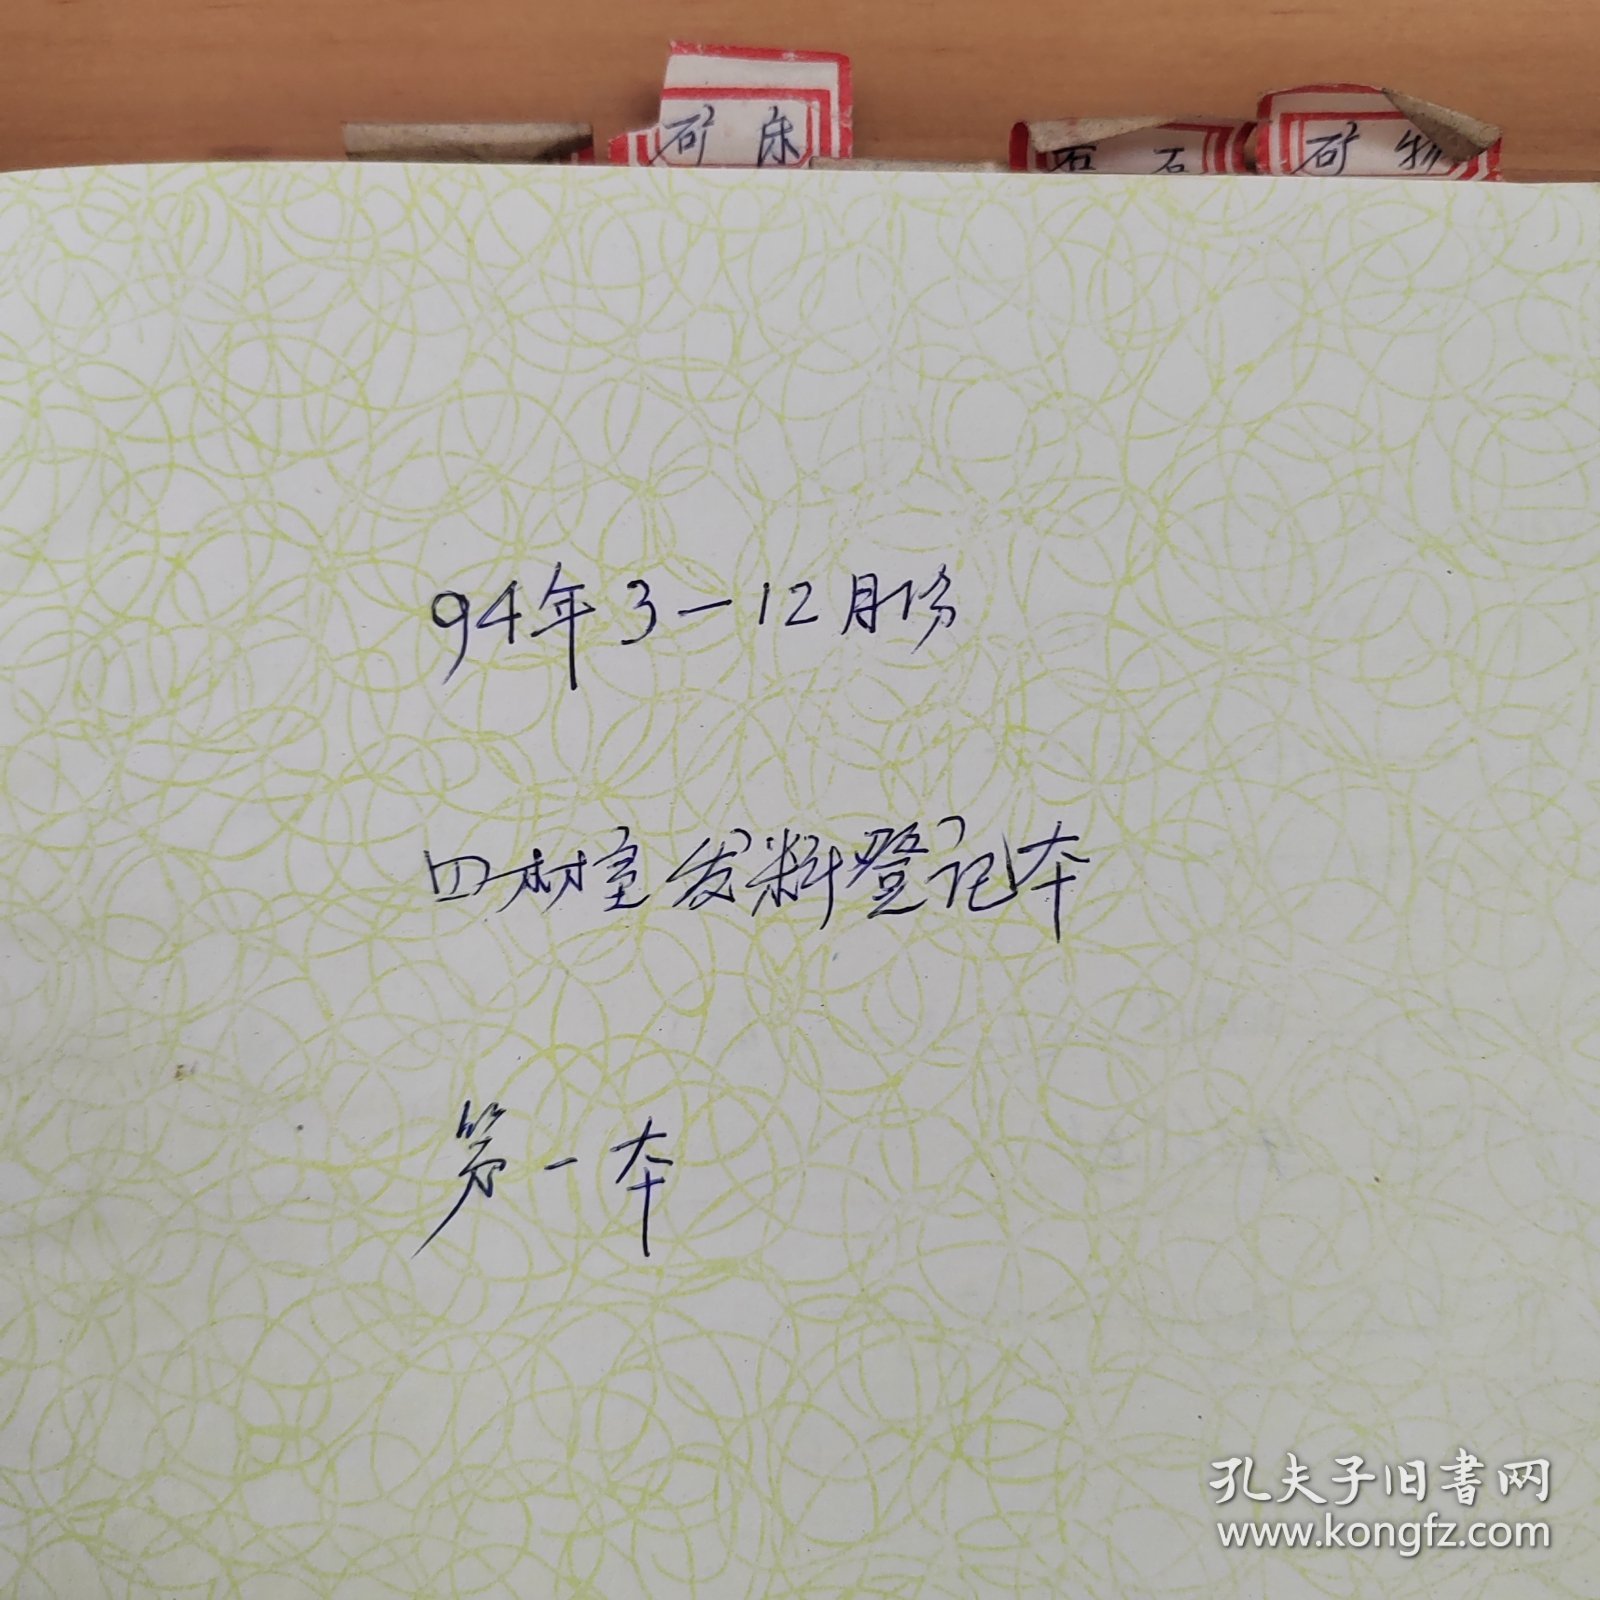 矿 床
岩 石
矿 物
94年3-12月份
四材室发料登记本
第一本
孔夫子旧書网
www.kongfz.com